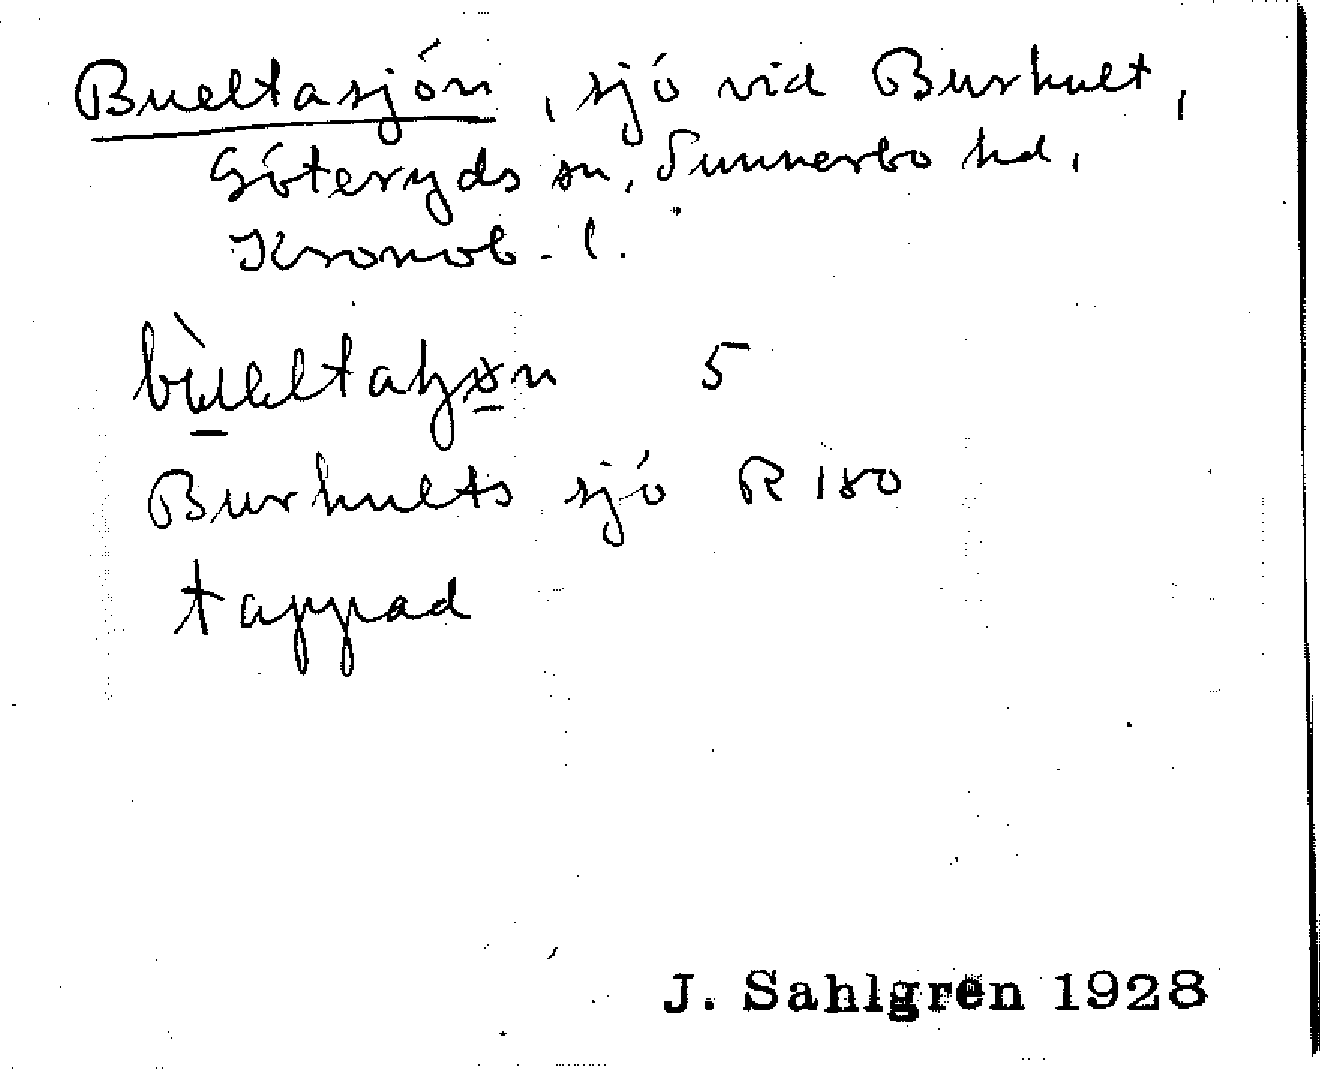 Bueltasjön, sjö vid Burhult,
Göteryds sn, Sunnerbo hd,
Kronob. l.
5
Burhults sjö R 180
tappad
J. Sahlgren 1928